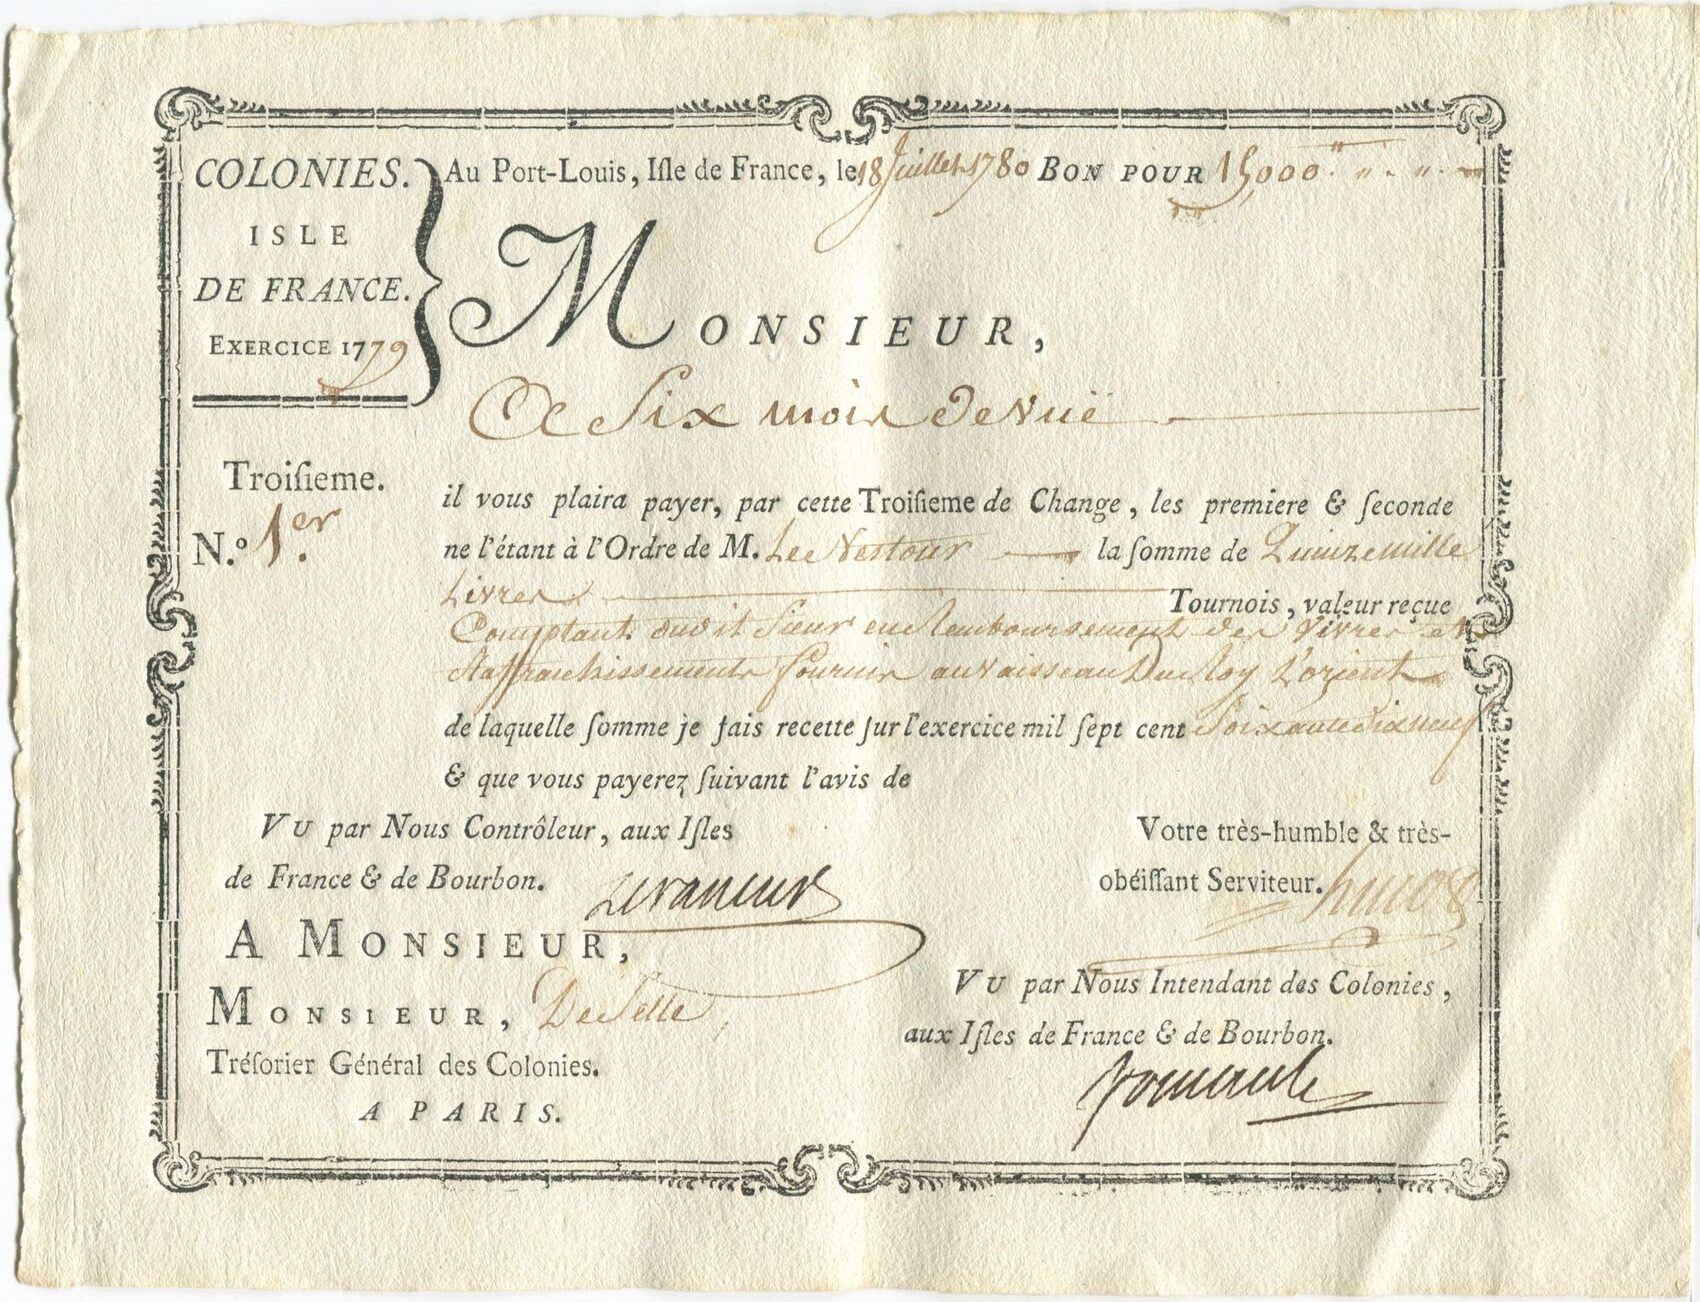 COLONIES.
ISLE
DE FRANCE.
EXERCICE 1779
Au Port-Louis, Iſle de France, le 18 Juillet 1780 BON POUR 15000.
MONSIEUR,
A Six mois de vuë
Troiſieme.
N.º 1.er
il vous plaira payer, par cette Troiſieme de Change, les premiere & ſeconde
ne l'étant à l'Ordre de M. Le Nestour la ſomme de Quinze mille
Livres Tournois, valeur reçue
Comptant dudit Sieur en Remboursement des vivres et
Raffraichissements fournis au Vaisseau Du Roy L'orient
de laquelle ſomme je fais recette ſur l'exercice mil ſept cent Soixante dix neuf
& que vous payerez ſuivant l'avis de
VU par Nous Contrôleur, aux Iſles
de France & de Bourbon.
Votre très-humble & très-
obéiſſant Serviteur.
A MONSIEUR,
MONSIEUR, De Selle
Tréſorier Général des Colonies.
A PARIS.
VU par Nous Intendant des Colonies,
aux Iſles de France & de Bourbon.